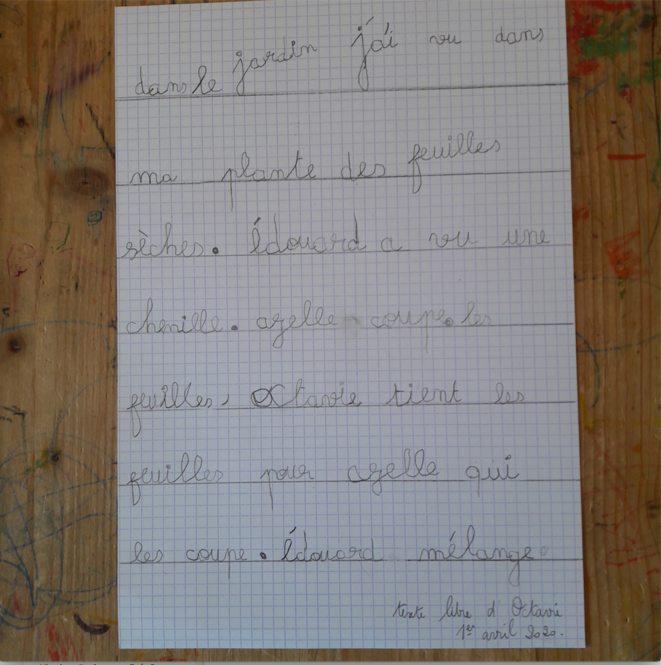 dans le jardin j'ai vu dans
ma plante des feuilles
sèches. Édouard a vu une
chenille. azelle coupe. les
feuilles, Octavie tient les
feuilles pour azelle qui
les coupe. Édouard mélange
texte libre d'Octavie
1er avril 2020.